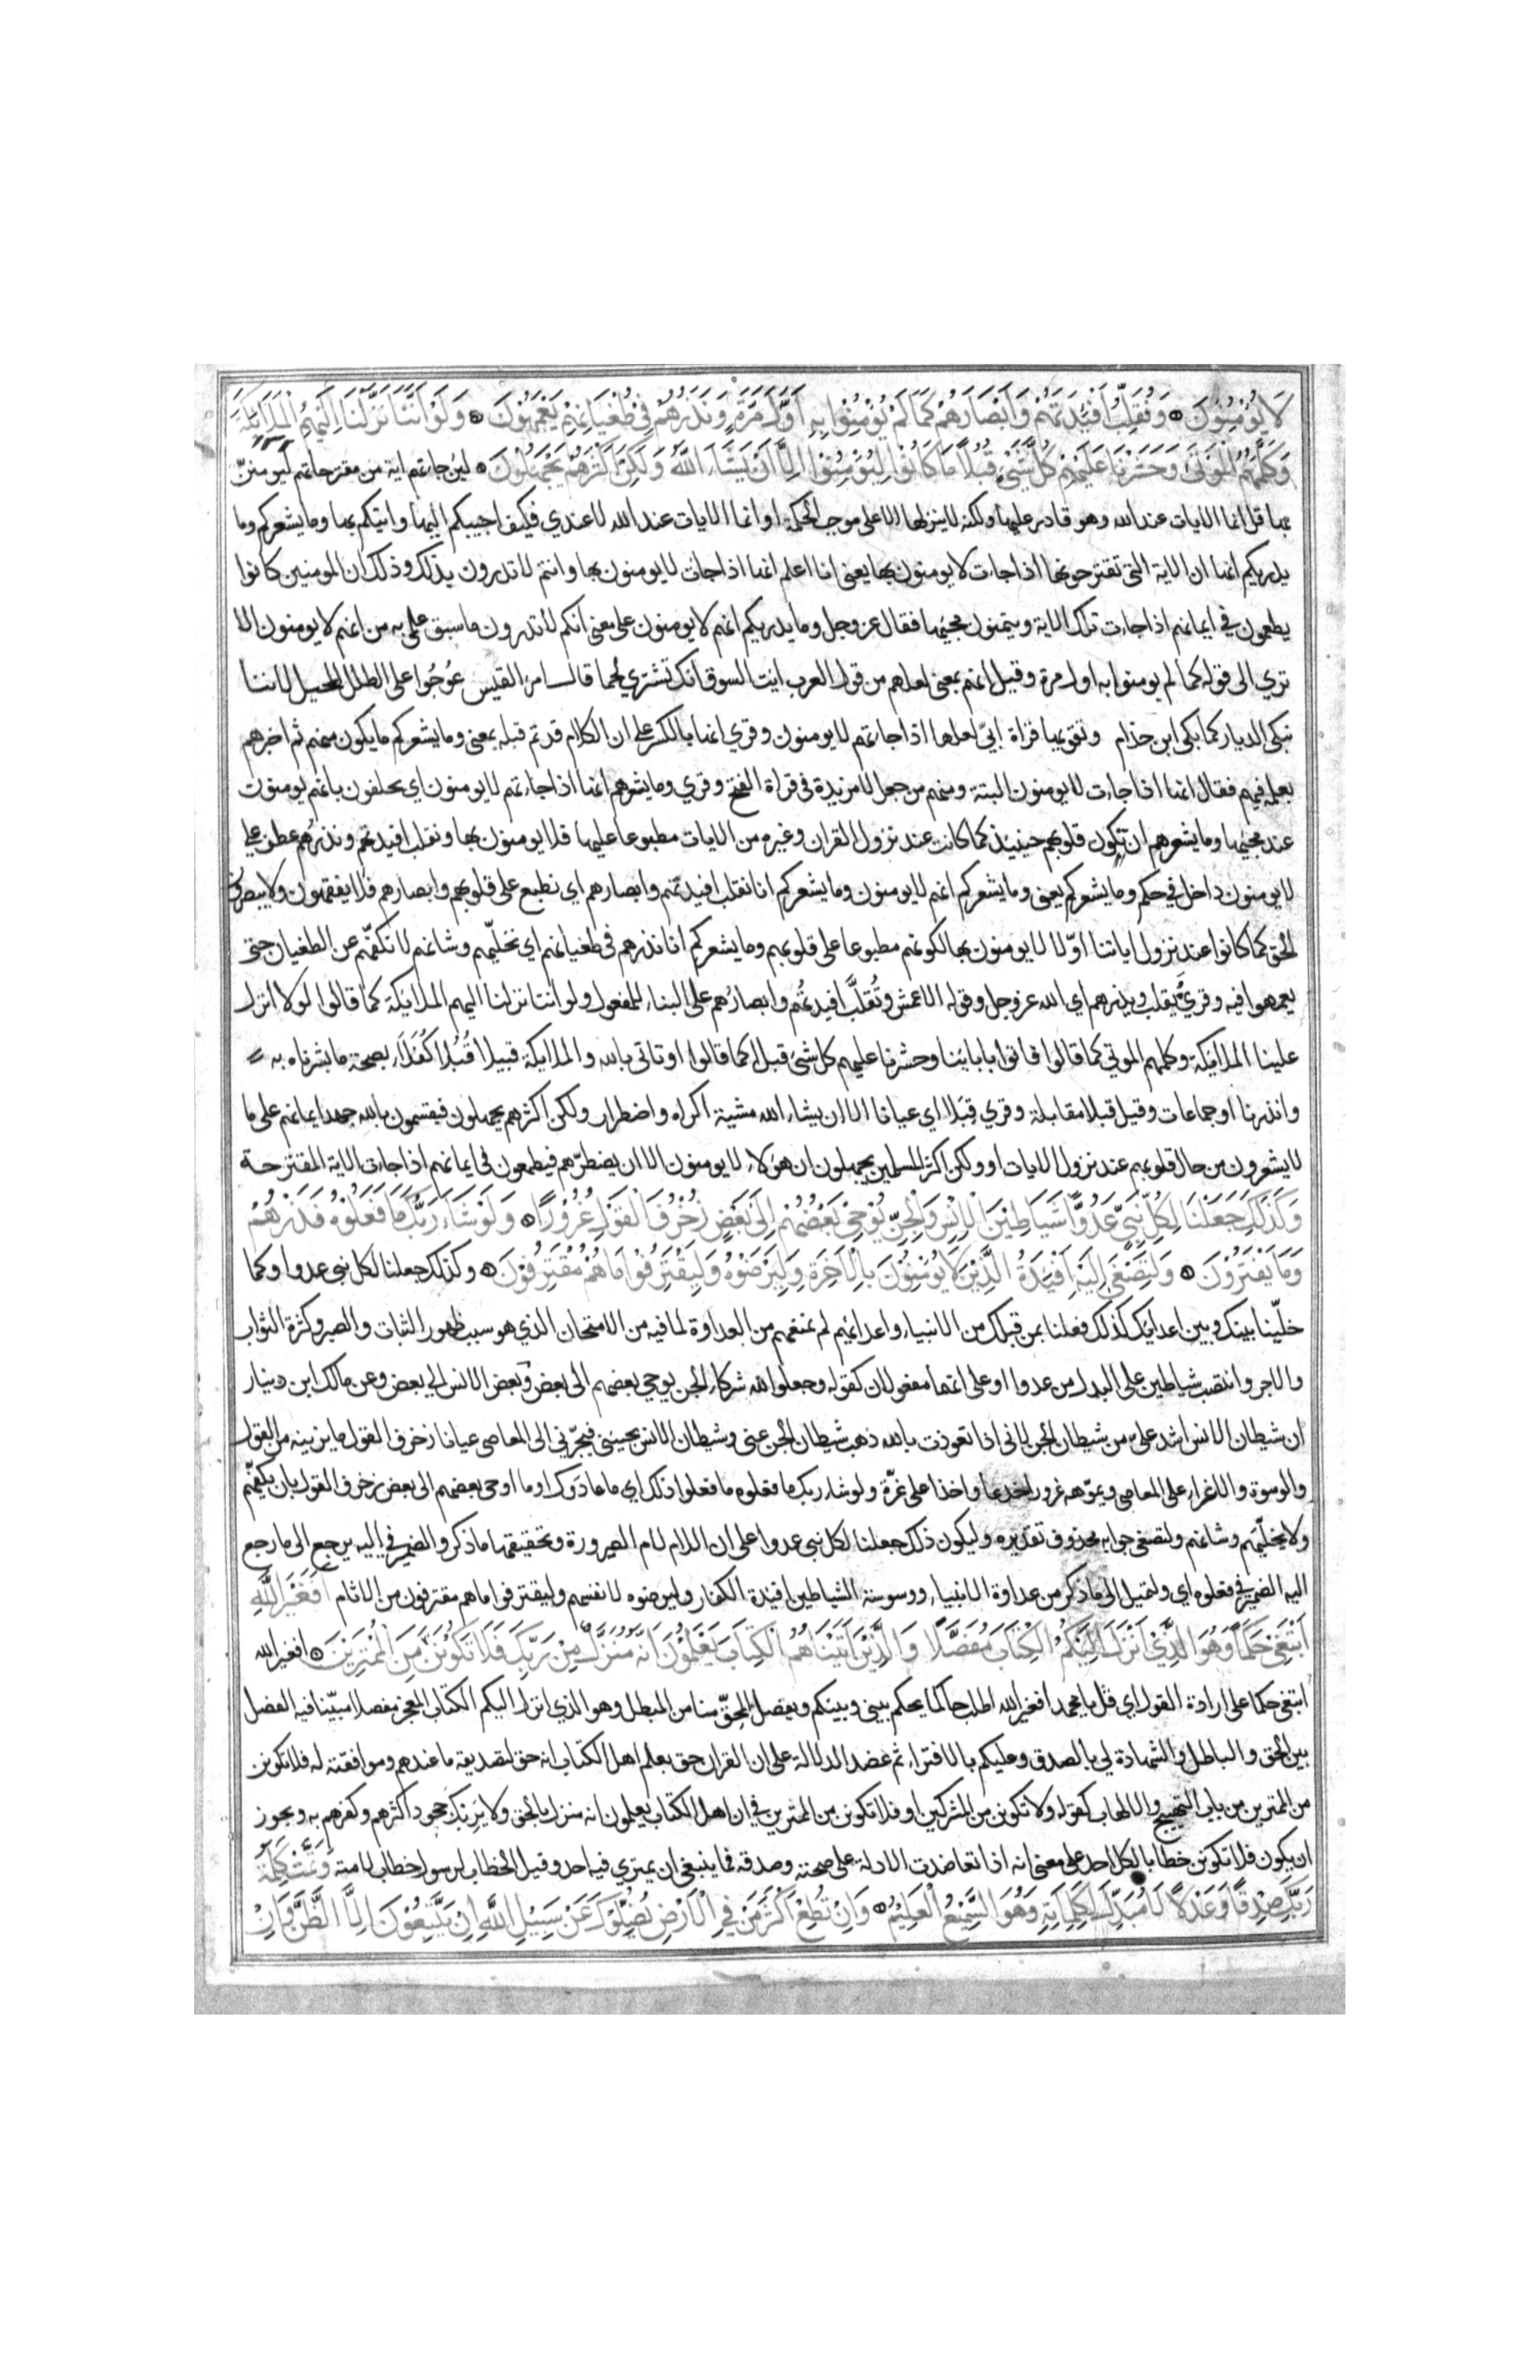 لَا يُؤْمِنُونَ ۞ وَنُقَلِّبُ اَفْئِدَتَهُمْ وَاَبْصَارَهُمْ كَمَا لَمْ يُؤْمِنُوا بِهِ اَوَّلَ مَرَّةٍ وَنَذَرُهُمْ فِي طُغْيَانِهِمْ يَعْمَهُونَ ۞ وَلَوْ اَنَّنَا نَزَّلْنَا اِلَيْهِمُ الْمَلَائِكَةَ
وَكَلَّمَهُمُ الْمَوْتَى وَحَشَرْنَا عَلَيْهِمْ كُلَّ شَيْءٍ قُبُلًا مَا كَانُوا لِيُؤْمِنُوا اِلَّا اَنْ يَشَاءَ اللَّهُ وَلَكِنَّ اَكْثَرَهُمْ يَجْهَلُونَ ۞ لئن جاتهم اية من مقترحاتهم ليومننّ
بها قل انما الايات عند الله وهو قادر عليها ولكنه لا ينزلها الا على موجب الحكمة او انما الايات عند الله لا عندي فكيف اجيبكم اليها واتيكم بها وما يشعركم وما
يدريكم انها ان الاية التي تقترحونها اذا جات لا يومنون بها يعني انا اعلم انها اذا جات لا يومنون بها وانتم لا تدرون بذلك وذلك ان المومنين كانوا
يطمعون في ايمانهم اذا جاءت تلك الاية ويتمنون مجيئها فقال عز وجل وما يدريكم انهم لا يومنون على معنى انكم لا تدرون ما سبق علمي به من انهم لا يومنون الا
تري الى قوله كما لم يومنوا به اول مرة وقيل انهم بمعنى لعلهم من قول العرب ايت السوق انك تشتري لحما قال امرؤ القيس عُوجُوا على الطلل المحيل لاننا
نبكى الديار كما بكى ابن خذام وتقويها قراة ابيّ لعلها اذا جاتهم لا يومنون وقري انها بالكسر على ان الكلام قد تم قبله بمعنى وما يشعركم ما يكون منهم ثم اخبرهم
بعلمه فيهم فقال انها اذا جاءت لا يومنون البتة ومنهم من جعل لا مزيدة في قراة الفتح وقري وما يشعرهم انها اذا جاءتهم لا يومنون اي يحلفون بانهم يومنون
عند مجيئها وما يشعرهم ان تكون قلوبهم حينيذ كما كانت عند نزول القران وغيره من الايات مطبوعا عليها فلا يومنون بها ونقلب افيدتهم ونذرهم عطف على
لا يومنون داخل في حكم وما يشعركم بمعنى وما يشعركم انهم لا يومنون وما يشعركم انا نقلب افيدتهم وابصارهم اي نطبع على قلوبهم وابصارهم فلا يفقهون ولا يبصرون
الحق كما كانوا عند نزول اياتنا اوّلا لا يومنون بها لكونهم مطبوعا على قلوبهم وما يشعركم انا نذرهم في طغيانهم اي نخليّهم وشانهم لا نكفّهم عن الطغيان حتى
يعمهوا فيه وقرئ ويقلب ويذرهم اي الله عز وجل وقراة الاعمش وتُقلَّب افيدتُهم وابصارُهم على البناء للمفعول ولو اننا نزلنا اليهم الملائكة كما قالوا لولا انزل
علينا الملائكة وكلمهم الموتي كما قالوا فاتوا بابائنا وحشرنا عليهم كل شئ قبلا كما قالوا او تاتي بالله والملايكة قبيلا قُبُلا كُفَلَاء بصحة ما بشرنا به
وانذرنا او جماعات وقيل قبلا مقابلة وقري قِبَلا اي عيانا الا ان يشاء الله مشية اكراه واضطرار ولكن اكثرهم يجهلون فيقسمون بالله جهد ايمانهم على ما
لا يشعرون من حال قلوبهم عند نزول الايات او ولكن اكثر المسلمين يجهلون ان هؤلاء لا يومنون الا ان يضطرّهم فيطمعون في ايمانهم اذا جاءت الاية المقترحة
وَكَذَلِكَ جَعَلْنَا لِكُلِّ نَبِيٍّ عَدُوًّا شَيَاطِينَ الْاِنْسِ وَالْجِنِّ يُوحِي بَعْضُهُمْ اِلَى بَعْضٍ زُخْرُفَ الْقَوْلِ غُرُورًا ۞ وَلَوْ شَاءَ رَبُّكَ مَا فَعَلُوهُ فَذَرْهُمْ
وَمَا يَفْتَرُونَ ۞ وَلِتَصْغَى اِلَيْهِ اَفْئِدَةُ الَّذِينَ لَا يُؤْمِنُونَ بِالْاٰخِرَةِ وَلِيَرْضَوْهُ وَلِيَقْتَرِفُوا مَا هُمْ مُقْتَرِفُونَ ۞ وكذلك جعلنا لكل نبى عدوا وكما
خلّينا بينك وبين اعدايك كذلك فعلنا بمن قبلك من الانبياء واعدائهم لم نمنعهم من العداوة لما فيه من الامتحان الذي هو سبب ظهور الثبات والصبر وكثرة الثواب
والاجر وانتصب شياطين على البدل من عدوا او على انهما مفعولان كقوله وجعلوا لله شركاء الجن يوحي بعضهم الى بعض وبعض الانس الى بعض وعن مالك ابن دينار
ان شيطان الانس اشد علىّ من شيطان الجن لانى اذا تعوذت بالله ذهب شيطان الجن عنى وشيطان الانس يجيئنى فيجرّنى الى المعاصى عيانا زخرف القول ما يزينه من القول
والوسوسة والاغراء على المعاصى ويموّهه غرورا خدعا واخذا على غرّة ولو شاء ربك ما فعلوه ما فعلوا ذلك اي ما عادوك او ما اوحى بعضهم الى بعض زخرف القول بان يكفّهم
ولا يخليّهم وشانهم ولتصغى جوابه محذوف تقديره وليكون ذلك جعلنا لكل نبى عدوا على ان اللام لام الصيرورة وتحقيقها ما ذكر والضمير في اليه يرجع الى ما رجع
اليه الضمير في فعلوه اي ولتميل الى ما ذكر من عداوة الانبياء ووسوسة الشياطين افئدة الكفار وليرضوه لانفسهم وليقترفوا ما هم مقترفون من الاثام اَفَغَيْرَ اللَّهِ
اَبْتَغِي حَكَمًا وَهُوَ الَّذِي اَنْزَلَ اِلَيْكُمُ الْكِتَابَ مُفَصَّلًا وَالَّذِينَ اٰتَيْنَاهُمُ الْكِتَابَ يَعْلَمُونَ اَنَّهُ مُنَزَّلٌ مِنْ رَبِّكَ فَلَا تَكُونَنَّ مِنَ الْمُمْتَرِينَ ۞ افغير الله
ابتغى حكما على ارادة القول اي قل يا محمد افغير الله اطلب حاكما يحكم بيني وبينكم ويفصل المحقّ منا من المبطل وهو الذي انزل اليكم الكتاب المعجز مفصلا مبيّنا فيه الفصل
بين الحق والباطل والشهادة لي بالصدق وعليكم بالافتراء ثم عضد الدلالة على ان القران حق بعلم اهل الكتاب انه حق لتصديقه ما عندهم وموافقته له فلا تكونن
من الممترين من باب التهييج والالهاب كقوله ولا تكونن من المشركين او فلا تكونن من الممترين في ان اهل الكتاب يعلمون انه منزل بالحق ولا يَرِبْك جحود اكثرهم وكفرهم به ويجوز
ان يكون فلا تكونن خطابا لكل احد على معنى انه اذا تعاضدت الادلة على صحته وصدقه فما ينبغي ان يمتري فيه احد وقيل الخطاب لرسول خطاب لامته وَتَمَّتْ كَلِمَةُ
رَبِّكَ صِدْقًا وَعَدْلًا لَا مُبَدِّلَ لِكَلِمَاتِهِ وَهُوَ السَّمِيعُ الْعَلِيمُ ۞ وَاِنْ تُطِعْ اَكْثَرَ مَنْ فِي الْاَرْضِ يُضِلُّوكَ عَنْ سَبِيلِ اللَّهِ اِنْ يَتَّبِعُونَ اِلَّا الظَّنَّ وَاِنْ